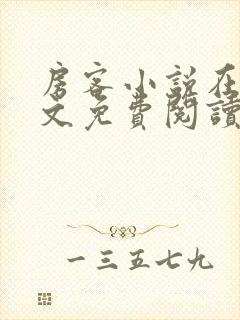 房客小说在
文免費閱讀
一三五七九